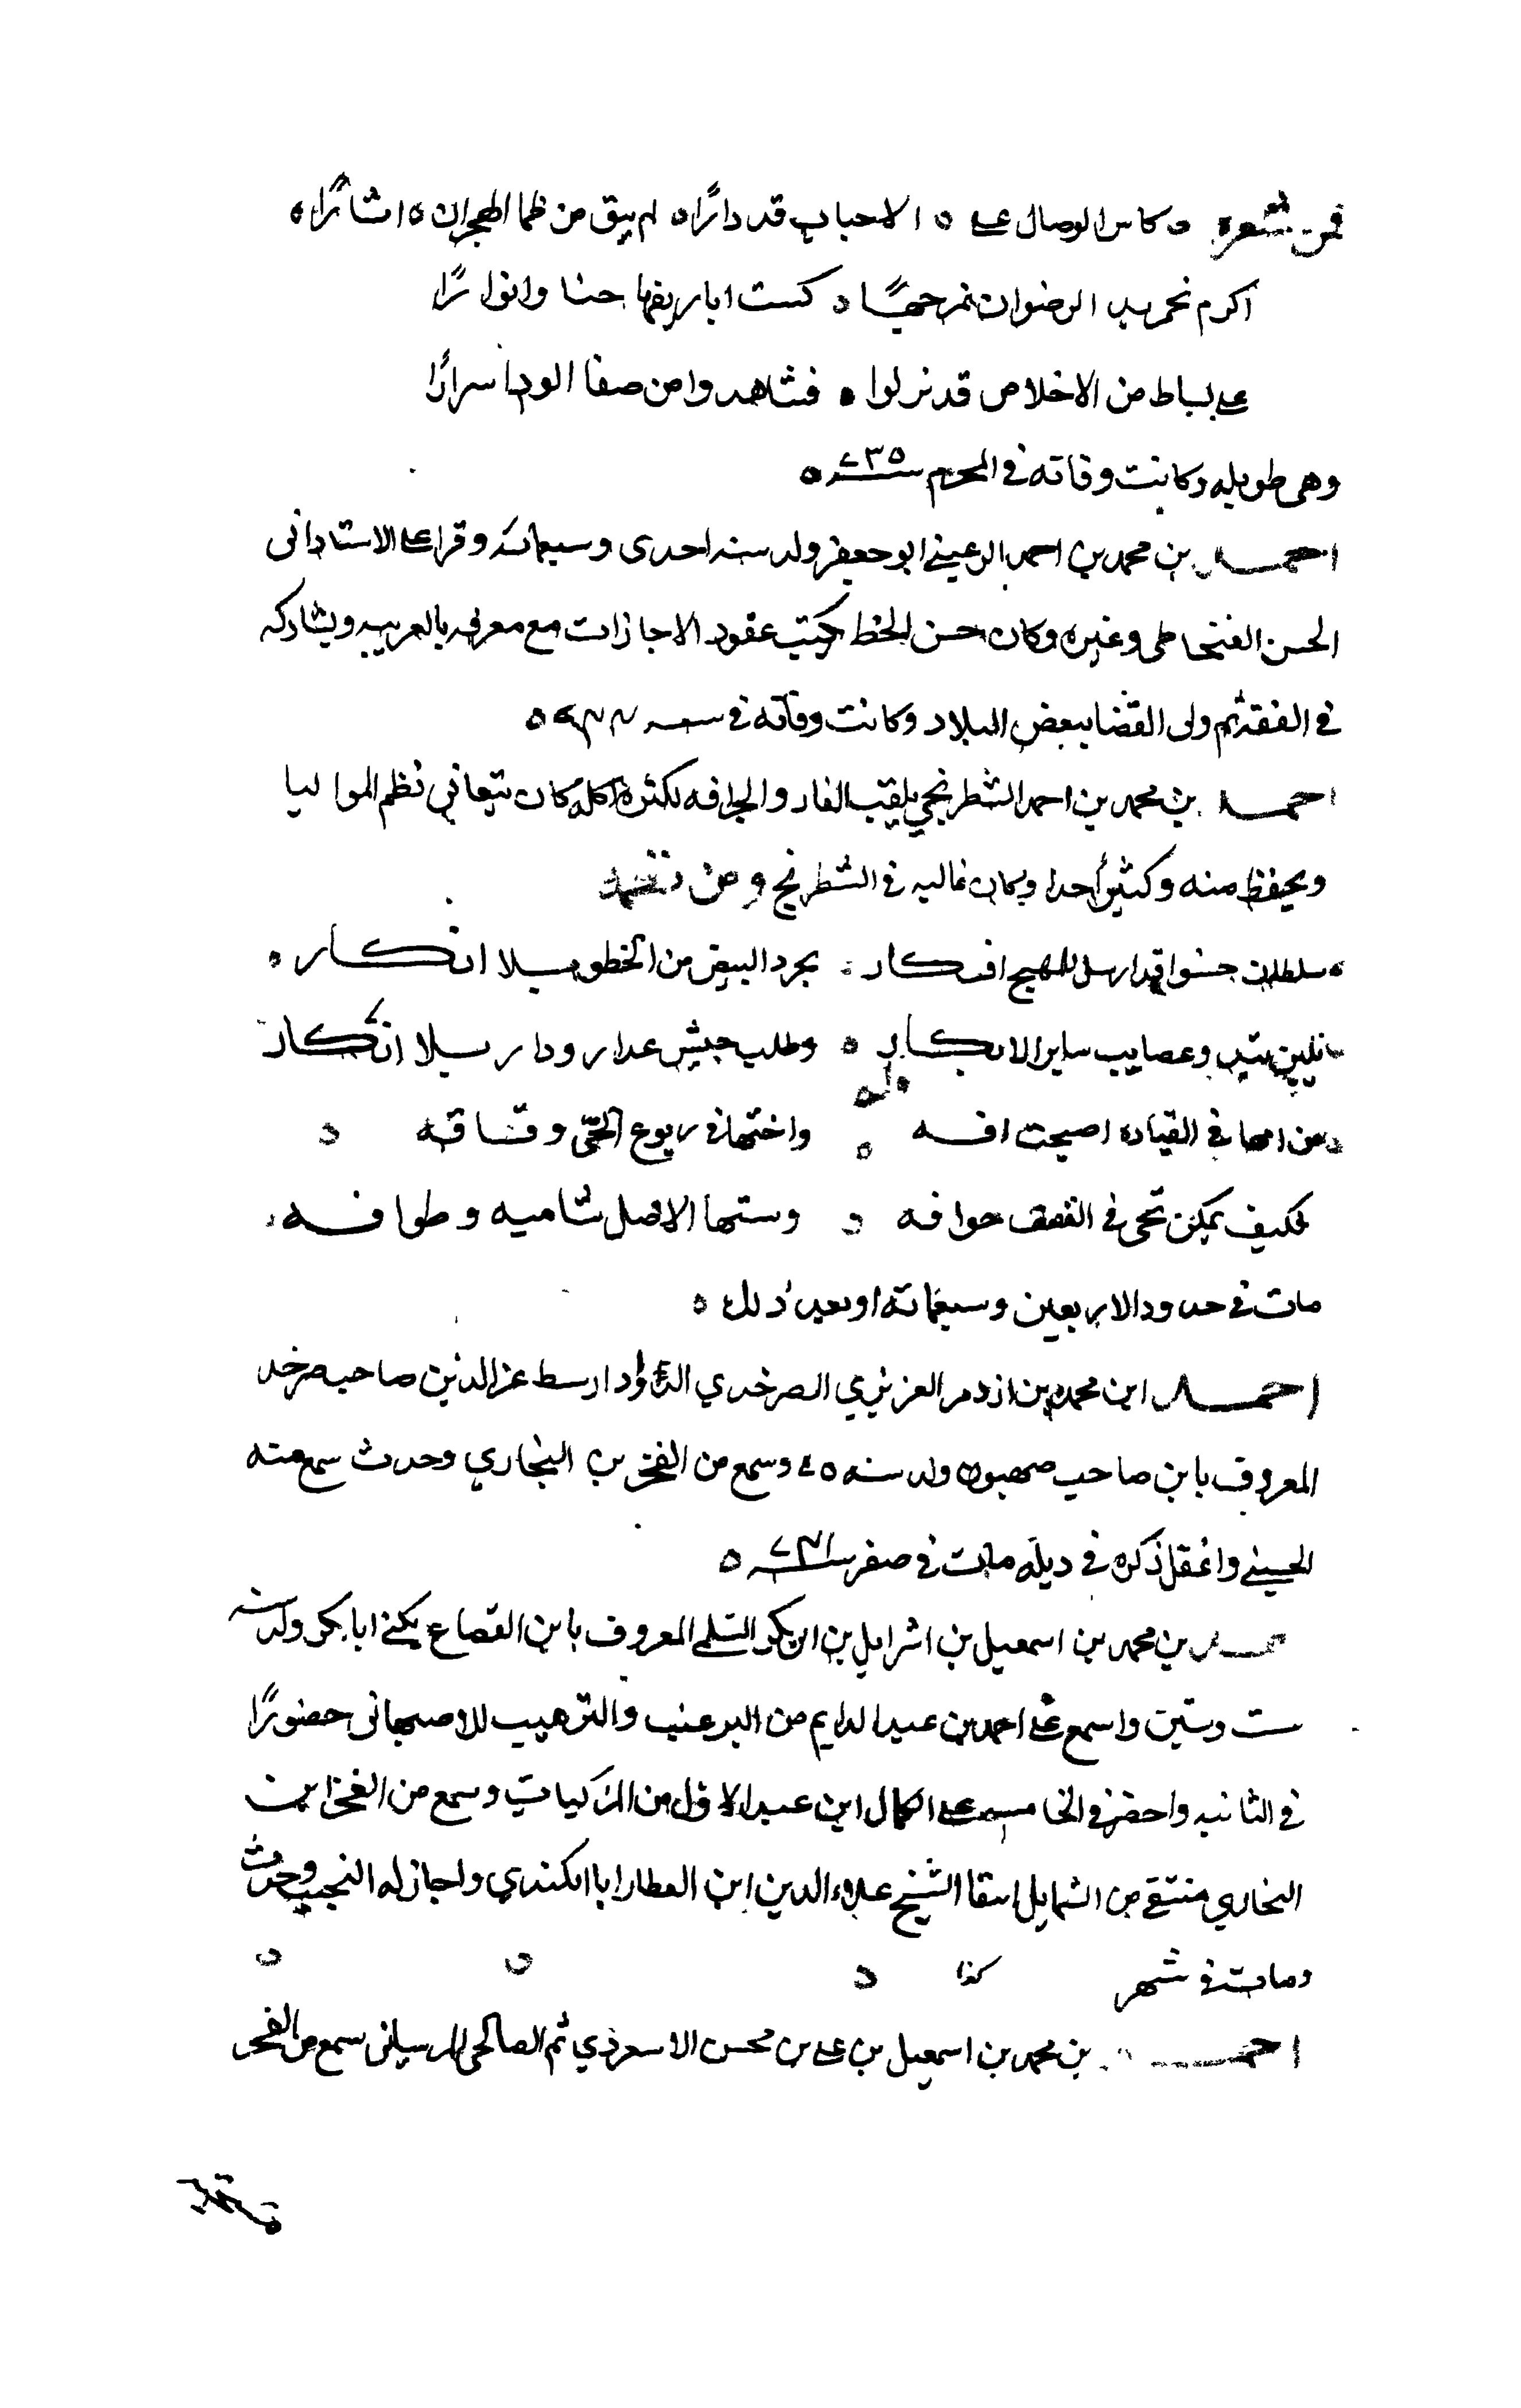 فمن شعره ه كاس الوصال على ه الاحباب قد دارًا ه لم يبق من ظما الهجران ه اثارًا ه
اكرم نحو يهم الرضوان مرحبًا ه كست اباريقها حسنا وانوارًا
على بساط من الاخلاص قد نزلوا ه فشاهدوا من صفا الود اسرارًا
وهى طويله وكانت وفاته فى المحرم سنه ٧٣٥ ه
احمد بن محمد بن احمد الرعينى ابو جعفر ولد سنه احدى وسبعمائه وقرا على الاستاد ابى
الحسن القيجاطى وغيره وكان حسن الخط كتب عقود الاجازات مع معرفه بالعربيه ويشاركه
فى الفقه ثم ولى القضا ببعض البلاد وكانت وفاته فى سنه
احمد بن محمد بن احمد الشطرنجي يلقب الفار والجرافه لكثرة اكله كان يتعانى نظم المواليا
ويحفظ منه وكثيرًا جدا وكان عاليه فى الشطرنج ومن نظمه
ه سلطان حسنوا قد ارسل للمهج افكار : بجرد البيض من الخطو بلا انكار ه
وعصايب ساير الابكار ه وطلب جيش عدار ودار بلا انكار
وله
ومن امها فى القياده اصبحت افه ه واختها فى ربوع الحى وقافه ه
فكيف يمكن تحى فى القصف حوافه ه وستها الاصل شاميه وطوافه
مات فى حدود الاربعين وسبعمائه او بعيد ذلك ه
احمد ابن محمد بن ازدمر العزيزي الصرخدي الدوادار سبط عز الدين صاحب صرخد
المعروف بابن صاحب صهيون ولد سنه وسمع من الفخر بن البخاري وحدث سمع منه
الحسينى واغفل ذكره فى ديله مات فى صفر سنه
احمد بن محمد بن اسمعيل بن اشرايل بن ابى بكر السلمى المعروف بابن القصاع يكنى ابا بكر ولد سنه
ست وستين واسمع على احمد بن عبد الدايم من البر عيب والترهيب للاصبهانى حضورًا
فى الثانيه واحضر فى الخامسه على الكمال ابن عبد الاول من المزكيات وسمع من الفخر ابن
البخاري منتقى من الشمايل انتقا الشيخ علاء الدين ابن العطار ابا الكندي واجاز له النجيب وحدث
ومات فى شهر كذا ه ه ه
احمد بن محمد بن اسمعيل بن على بن محسن الاسعردي ثم الصالحى سمع من الفخر